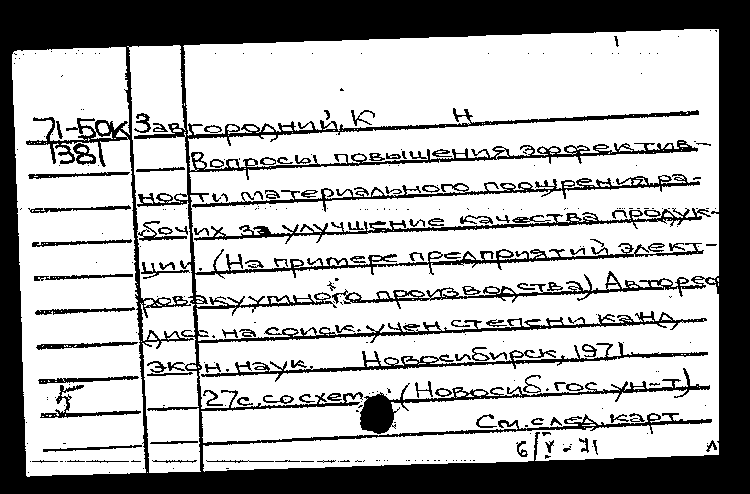 71-50к Завгородний, К Н
1381 Вопросы повышения эффектив-
ности материального поощрения ра-
бочих за улучшение качества продук-
ции. (На примере предприятий элект-
ровакуумного производства). Автореф
дисс. на соиск. учен. степени канд
экон. наук. Новосибирск, 1971.
5 27 с. со схем. (Новосиб. гос. ун-т).
См. след. карт.
6/V-71